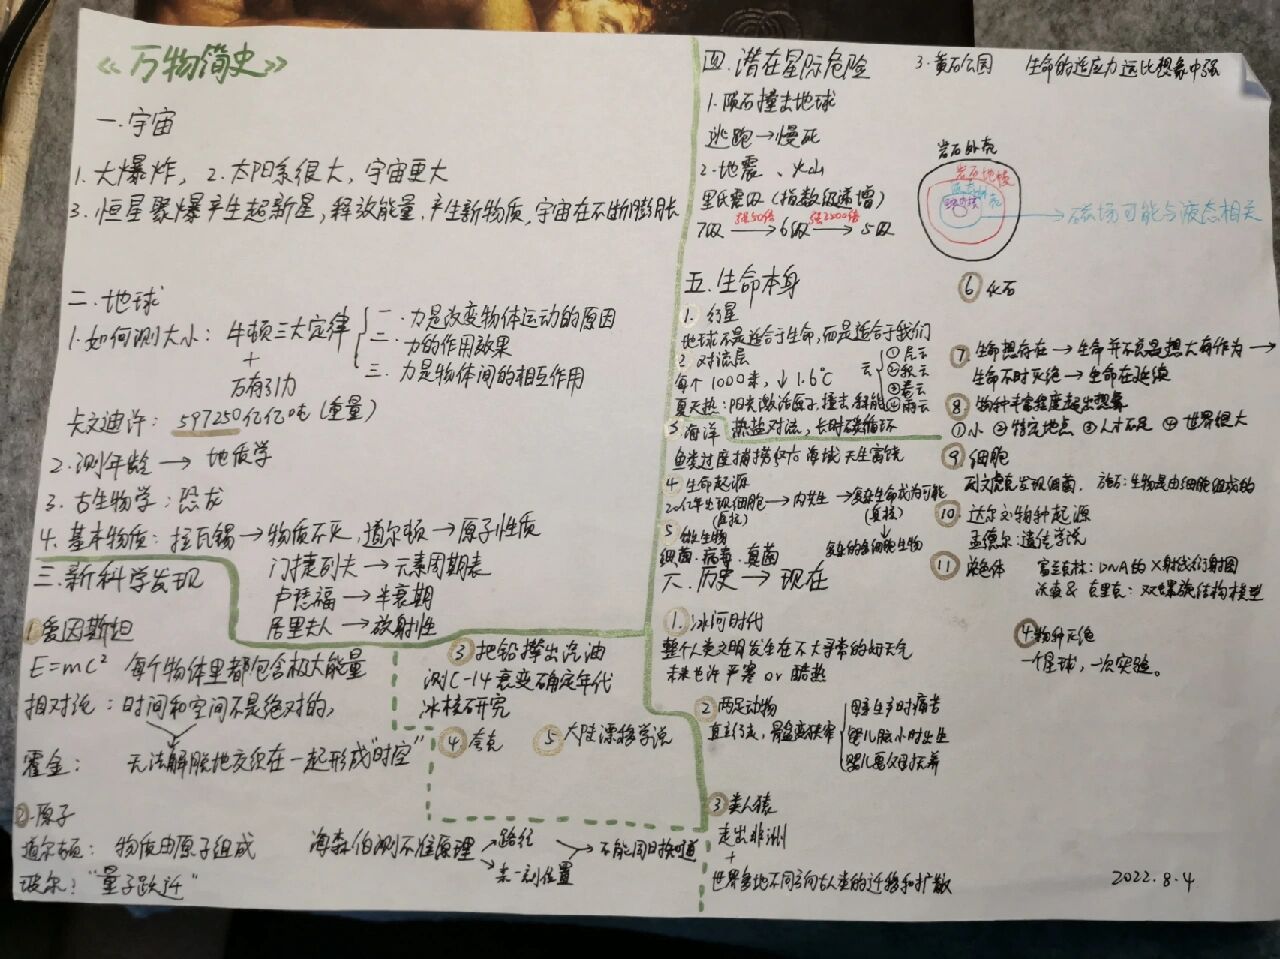 《万物简史》
一.宇宙
1.大爆炸，2.太阳系很大，宇宙更大
3.恒星聚爆产生超新星，释放能量，产生新物质，宇宙在不断膨胀
二.地球
1.如何测大小：牛顿三大定律
一.力是改变物体运动的原因
二.力的作用效果
三.力是物体间的相互作用
+
万有引力
卡文迪许：597250亿亿吨(重量)
2.测年龄→地质学
3.古生物学：恐龙
4.基本物质：拉瓦锡→物质不灭，道尔顿→原子性质
门捷列夫→元素周期表
卢瑟福→半衰期
居里夫人→放射性
三.新科学发现
1爱因斯坦
E=mc² 每个物体里都包含极大能量
相对论：时间和空间不是绝对的，
霍金：无法解脱地交织在一起形成"时空"
2.原子
道尔顿：物质由原子组成
玻尔："量子跃迁"
海森伯测不准原理
路径
某一刻位置
不能同时知道
③把铅撵出汽油
测C-14衰变确定年代
冰核研究
④夸克
⑤大陆漂移学说
四.潜在星际危险
1.陨石撞击地球
逃跑→慢死
2.地震、火山
里氏震级(指数级递增)
7级→6级→5级
3.黄石公园 生命的适应力远比想象中强
岩石外壳
岩石地幔
磁场可能与液态相关
五.生命本身
1.行星
地球不是适合于生命，而是适合于我们
2.对流层
每个1000米，↓1.6°C
云
3.海洋 热盐对流，长时碳循环
4.生命起源
5微生物
细菌.病毒.真菌
复杂的多细胞生物
⑥化石
⑦生命想存在→生命并不总是想大有作为→
生命不时灭绝→生命在延续
⑧物种丰富程度超出想象
①小 ②特定地点 ③人才不足 ④世界很大
⑨细胞
列文虎克发现细菌.
⑩达尔文物种起源
孟德尔：遗传学说
⑪染色体
富兰克林：DNA的X射线衍射图
沃森&克里克：双螺旋结构模型
六.历史→现在
1.冰河时代
整个人类文明发生在不大寻常的好天气
未来也许严寒or酷热
②两足动物
直立行走，骨盆变狭窄
母亲生产时痛苦
婴儿脑小时出生
婴儿需父母抚养
③类人猿
走出非洲
+
世界各地不同方向人类的迁移和扩散
4物种灭绝
一个星球，一次实验。
2022.8.4